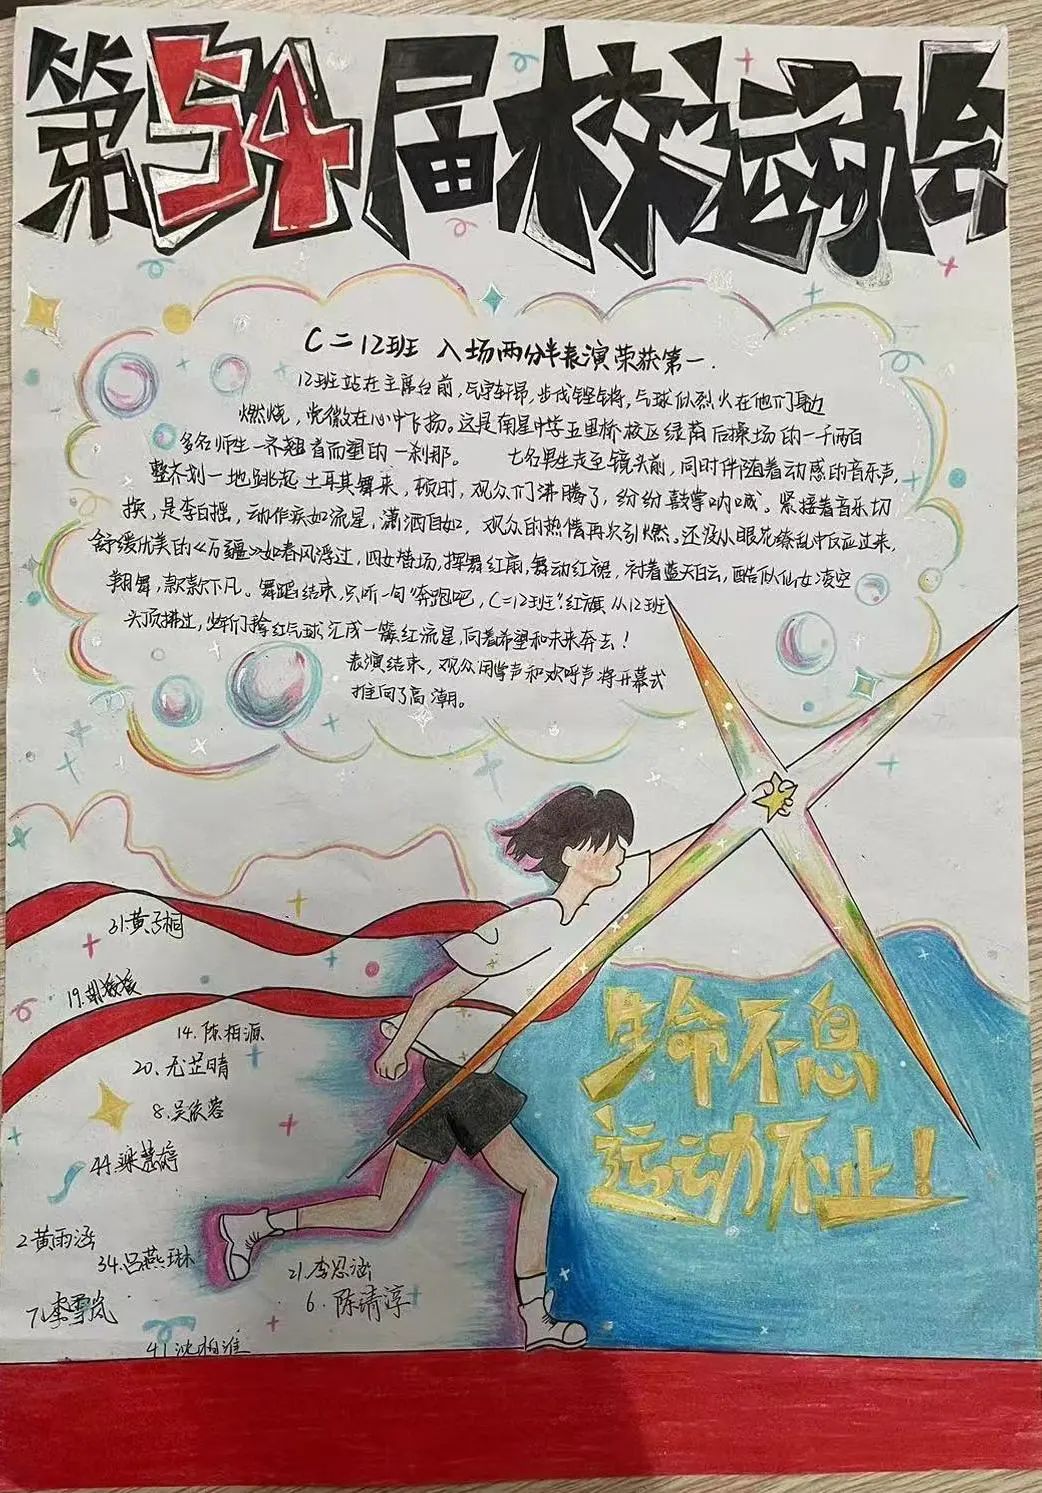 第54届校运动会
C二12班 入场两分半表演荣获第一.
12班站在主席台前,气宇轩昂,步伐铿锵,气球似烈火在他们身边
燃烧,党徽在心中飞扬。这是南星中学五里桥校区绿茵后操场的一千两百
多名师生一齐翘首而望的一刹那。 七名男生走至镜头前,同时伴随着动感的音乐声,
整齐划一地跳起土耳其舞来,顿时,观众们沸腾了,纷纷鼓掌呐喊。紧接着音乐切
换,是李白摇,动作疾如流星,潇洒自如,观众的热情再次引燃。还没从眼花缭乱中反应过来,
舒缓优美的《万疆》如春风浮过,四女登场,挥舞红扇,舞动红裙,衬着蓝天白云,酷似仙女凌空
翔舞,款款下凡。舞蹈结束,只听一句"奔跑吧,C二12班"红旗从12班
头顶拂过,少年们拿红气球汇成一簇红流星,向着希望和未来奔去!
表演结束,观众用掌声和欢呼声将开幕式
推向了高潮。
31.黄子桐
19.胡
14.陈柏源
20.尤芷晴
8.吴依蓉
44.梁慧婷
2.黄雨涵
34.吕燕琳
21.李思涵
7.李雪岚
6.陈靖淳
41.沈柏淮
生命不息
运动不止!